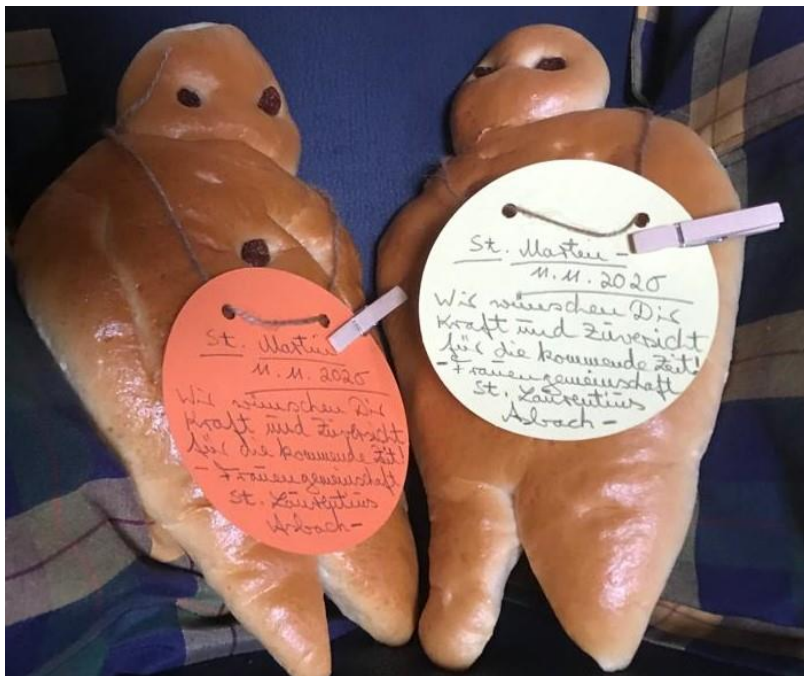 St. Martin
11.11.2020
Wir wünschen Dir
Kraft und Zuversicht
für die kommende Zeit!
- Frauengemeinschaft
St. Laurentius
Asbach -
St. Martin -
11.11.2020
Wir wünschen Dir
Kraft und Zuversicht
für die kommende Zeit!
- Frauengemeinschaft
St. Laurentius
Asbach -